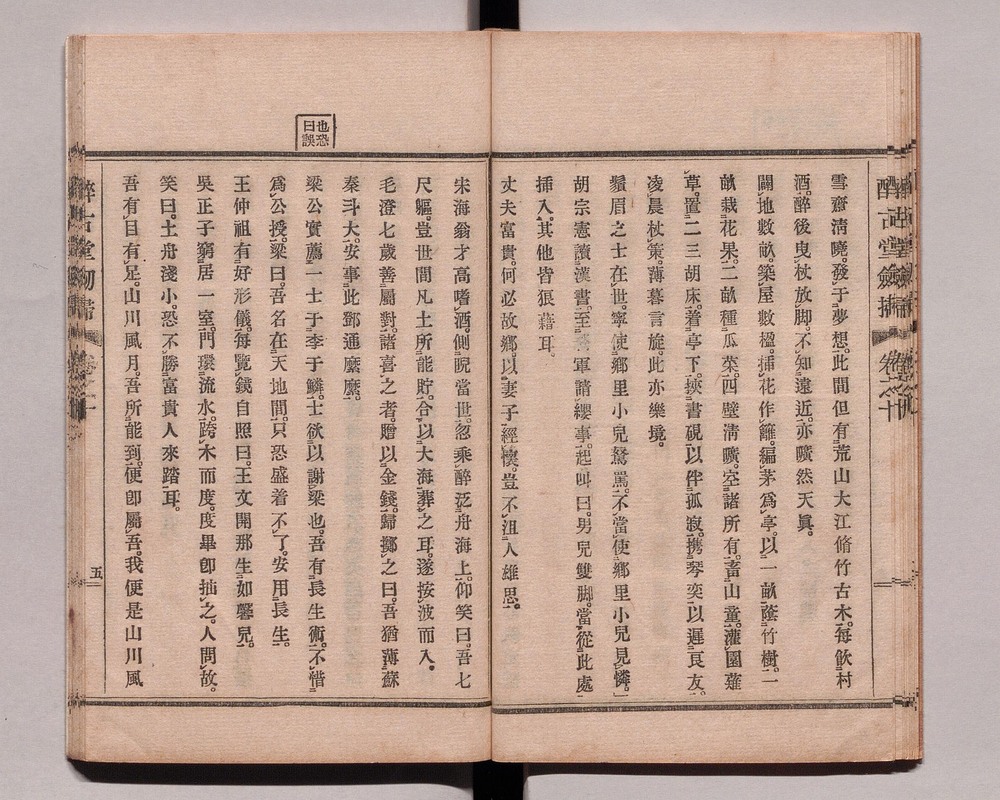 雪齋淸曉。發于夢想。此間但有荒山大江。脩竹古木。每飮村
酒。醉後曳杖放脚。不知遠近。亦曠然天眞。
闢地數畝。築屋數楹。插花作籬。編茅爲亭。以一畝蔭竹樹。二
畝栽花果。二畝種瓜菜。四壁淸曠。空諸所有。畜山童。灌園薙
草。置二三胡床。着亭下。挾書硯以伴孤寂。携琴奕以遲良友。
凌晨杖策。薄暮言旋。此亦樂境。
鬚眉之士在世。寧使鄕里小兒怒罵。不當使鄕里小兒見憐。
胡宗憲讀漢書。至終軍請纓事。起叫曰。男兒雙脚。當從此處
插入。其他皆狼藉耳。
丈夫富貴。何必故鄕。以妻子經懷。豈不沮人雄思。
宋海翁才高嗜酒。側睨當世。忽乘醉泛舟海上。仰笑曰。吾七
尺軀。豈世間凡土所能貯。合以大海葬之耳。遂按波而入。
毛澄七歲善屬對。諸喜之者贈以金錢。歸擲之曰。吾猶薄蘇
秦斗大。安事此鄧通麼麼。
梁公實薦一士于李于鱗。士欲以謝梁也。吾有長生術。不惜
爲公授。梁曰。吾名在天地間。只恐盛着不了。安用長生。
王仲祖有好形儀。每覽鏡自照曰。王文開那生如馨兒。
吳正子窮居一室。門環流水。跨木而度。度畢卽抽之。人問故。
笑曰。土舟淺小。恐不勝富貴人來踏耳。
吾有目有足。山川風月。吾所能到。便卽屬吾。我便是山川風
也恐
曰誤
五